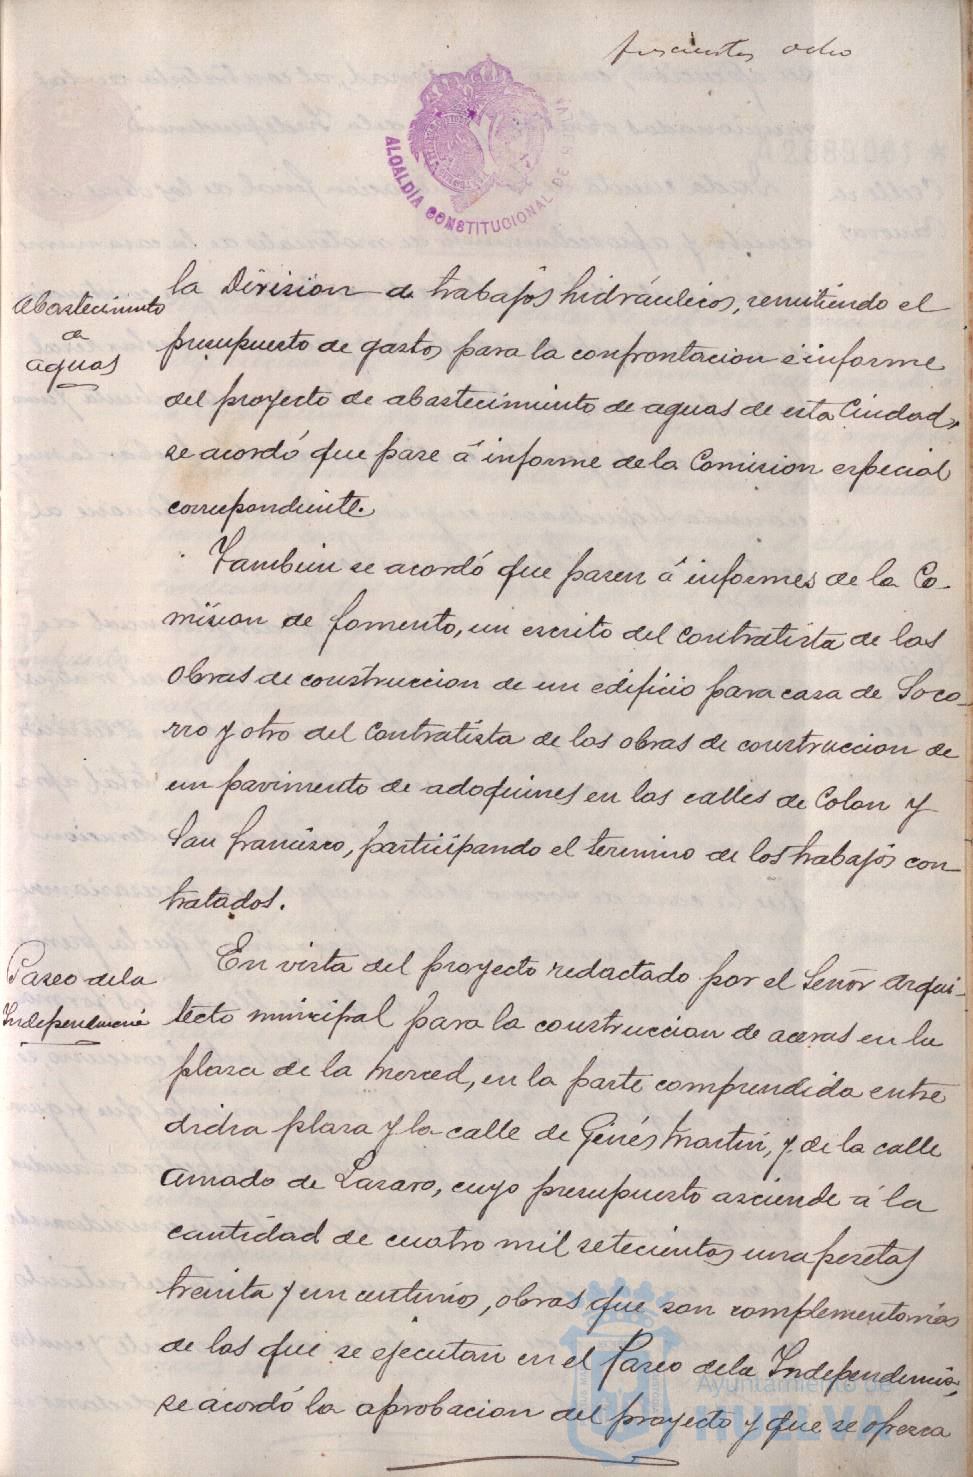 trescientos ocho
ALCALDÍA CONSTITUCIONAL DE HUELVA
Abastecimiento
de
aguas
la Division de trabajos hidráulicos, remitiendo el
presupuesto de gastos para la confrontacion é informe
del proyecto de abastecimiento de aguas de esta Ciudad,
se acordó que pase á informe de la Comision especial
correspondiente.
Tambien se acordó que pasen á informes de la Co-
mision de fomento, un escrito del contratista de las
obras de construccion de un edificio para casa de Soco-
rro y otro del Contratista de las obras de construccion de
un pavimento de adoquines en las calles de Colon y
San Francisco, participando el termino de los trabajos con-
tratados.
Paseo de la
Independencia
En vista del proyecto redactado por el Señor Arqui-
tecto municipal para la construccion de aceras en la
plaza de la Merced, en la parte comprendida entre
dicha plaza y la calle de Ginés Martin, y de la calle
Amado de Lazaro, cuyo presupuesto asciende á la
cantidad de cuatro mil setecientas una pesetas
treinta y un centimos, obras que son complementarias
de las que se ejecutan en el Paseo de la Independencia,
se acordó la aprobacion del proyecto y que se ofrezca
Ayuntamiento de
HUELVA